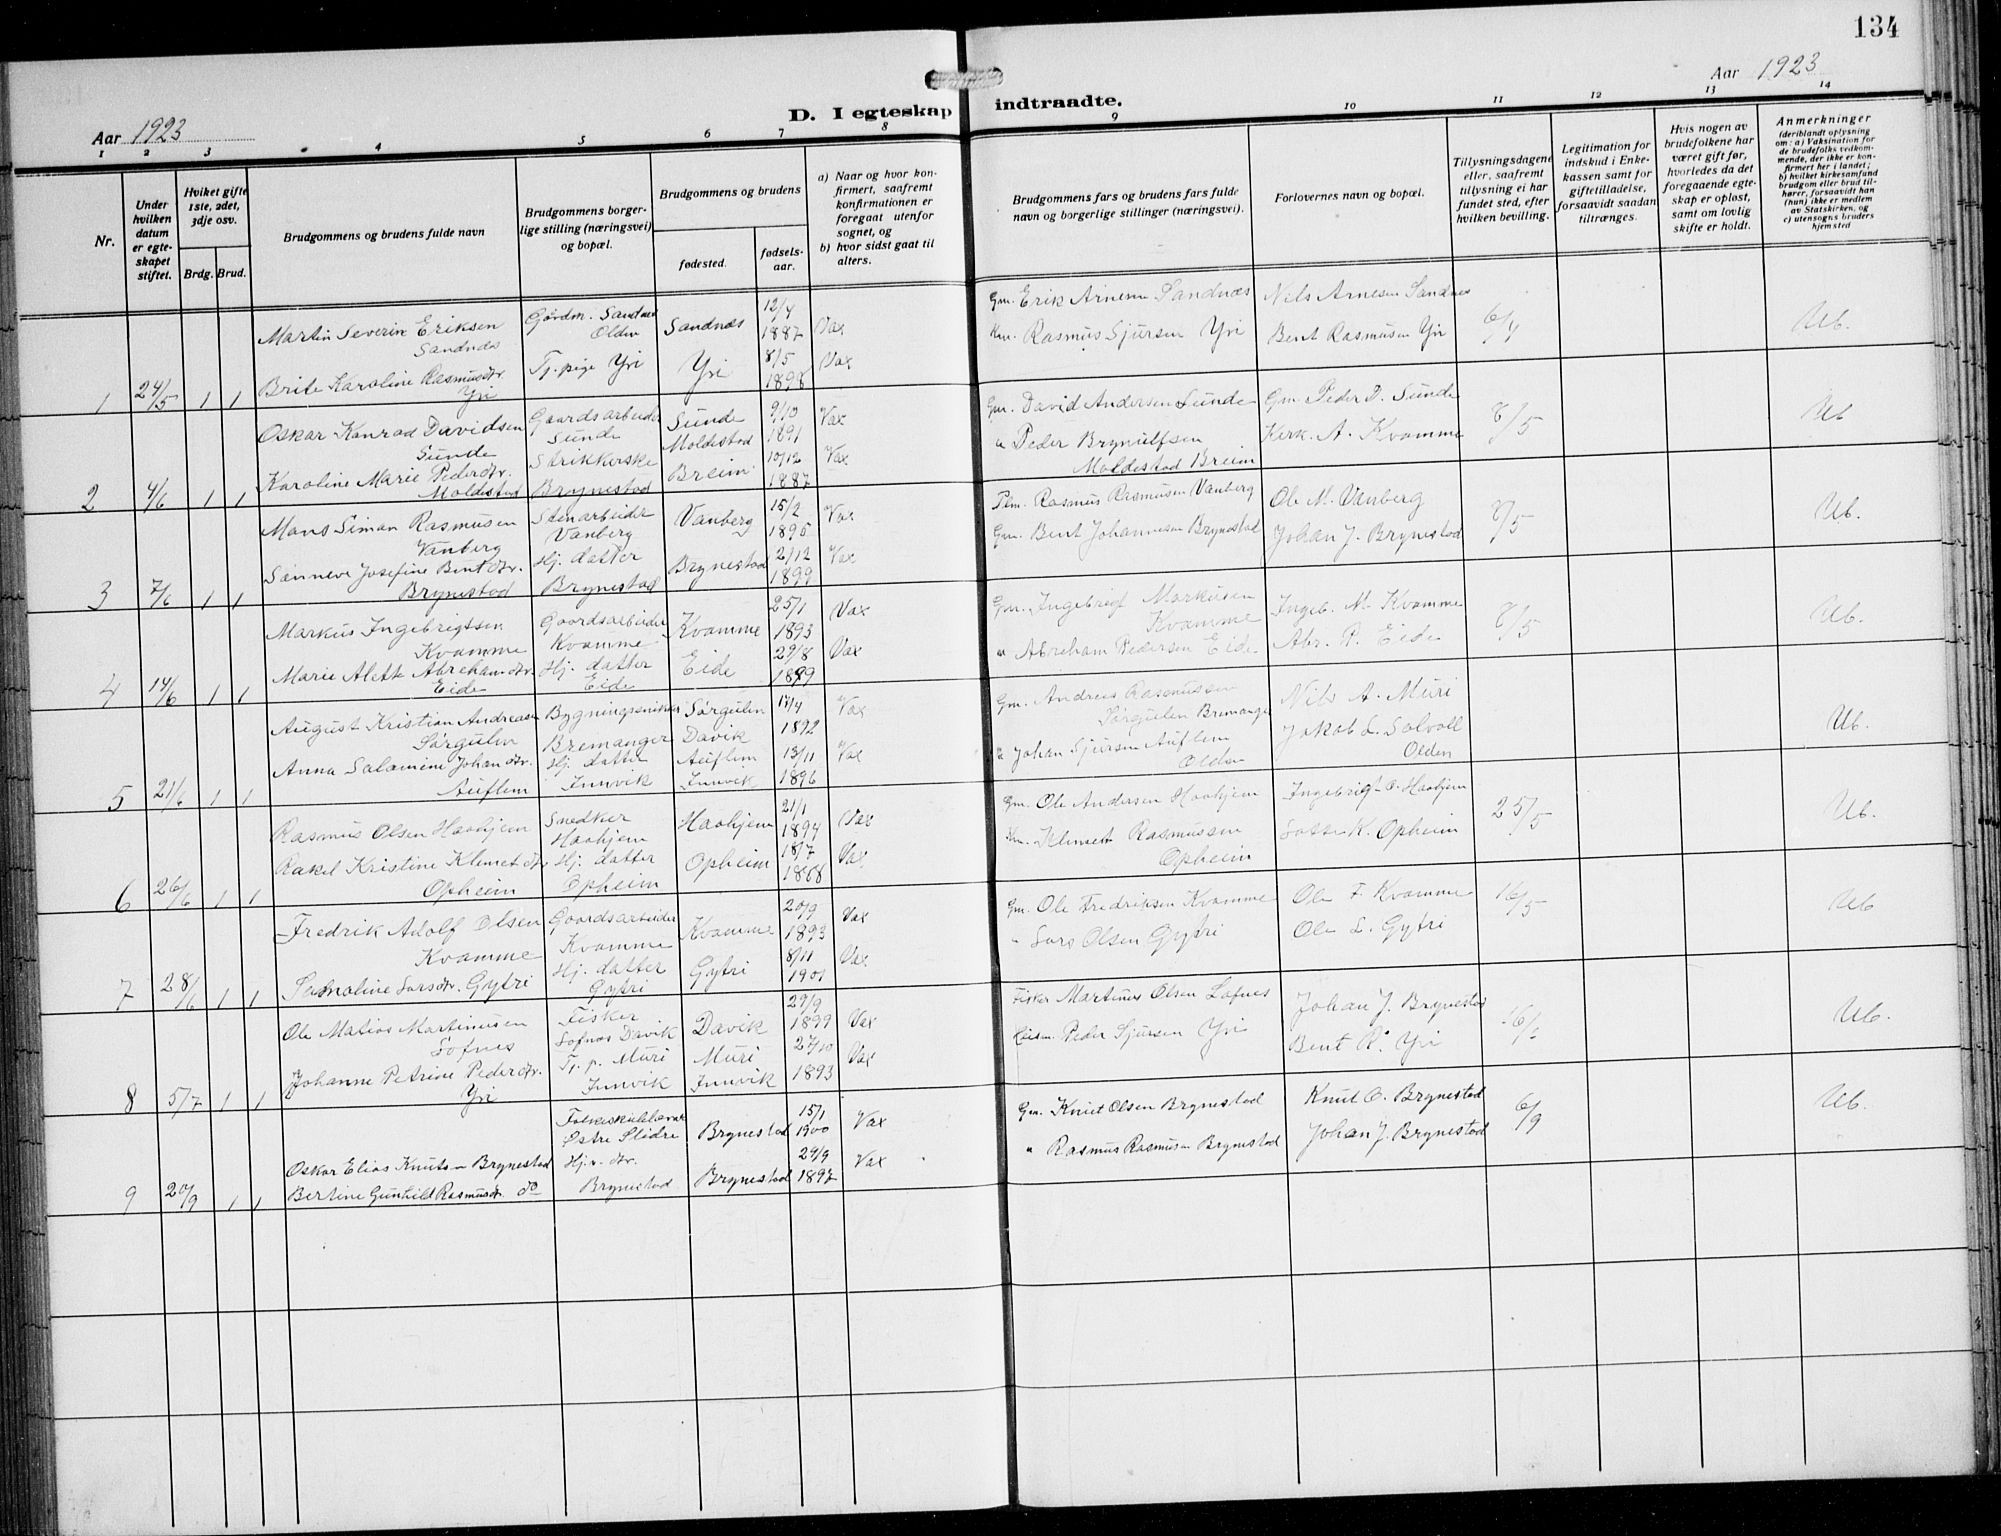 134
Aar 1923
Aar 1923
D. I egteskap indtraadte.
1 2 3 4 5 6 7 8 9 10 11 12 13 14
Nr.
Under hvilken datum er egte- skapet stiftet.
Hviket gifte 1ste, 2det, 3dje osv.
Brdg. Brud.
Brudgommens og brudens fulde navn
Brudgommens borger- lige stilling (næringsvei) og bopæl.
Brudgommens og brudens
fødested.
fødsels- aar.
a) Naar og hvor kon- firmert, saafremt konfirmationen er foregaat utenfor sognet, og
b) hvor sidst gaat til alters.
Brudgommens fars og brudens fars fulde navn og borgerlige stillinger (næringsvei).
Forlovernes navn og bopæl.
Tillysningsdagene eller, saafremt tillysning ei har fundet sted, efter hvilken bevilling.
Legitimation for indskud i Enke- kassen samt for giftetilladelse, forsaavidt saadan tiltrænges.
Hvis nogen av brudefolkene har været gift før, hvorledes da det foregaaende egte- skap er opløst, samt om lovlig skifte er holdt.
Anmerkninger
(deriblandt oplysning om: a) Vaksination for de brudefolks vedkom- mende, der ikke er kon- firmert her i landet; b) hvilket kirkesamfund brudgom eller brud til- hører, forsaavidt han (hun) ikke er medlem av Statskirken, og c) utensogns bruders hjemsted
Martin Severin Eriksen Sandnes
Gardm. Sandnes Olden
Sandnæs
12/4 1887
Vax
Gm. Erik Arnesen Sandnæs
Nils Arnesen Sandnes
6/4
Ub.
1 24/5 1 1
Brite Karoline Rasmusdtr. Yri
Tj. pige Yri
Yri
8/5 1898
Vax
Rasmus Sjursen Yri
Bent Rasmusen Yri
Oskar Konrad Davidsen Sunde
Gaardsarbeider Sunde
Sunde
9/10 1891
Vax
Gm. David Andersen Sunde
Gm Peder D. Sunde
8/5
Ub
2 4/6 1 1
Karoline Marie Pedersdtr. Moldestad
Strikkerske Brynestad
Moldestad Breim
10/12 1887
Vax
" Peder Brynulfsen Moldestad Breim
Kirk. A. Kvamme
Mons Simon Rasmusen Vanberg
Stenarbeider Vanberg
Vanberg
15/2 1895
Vax
Plm. Rasmus Rasmusen Vanberg
Ole M. Vanberg
8/5
Ub.
3 7/6 1 1
Sanneve Josefine Bentdtr. Brynestad
Hj. datter Brynestad
Brynestad
2/12 1899
Vax
Gm. Bent Johannesen Brynestad
Johan J. Brynestad
Markus Ingebrigtsen Kvamme
Gaardsarbeider Kvamme
Kvamme
25/1 1893
Vax
Gm. Ingebrigt Markusen Kvamme
Ingeb. M. Kvamme
8/5
Ub.
4 14/6 1 1
Marie Alette Abrahamdtr. Eide
Hj. datter Eide
Eide
29/8 1899
Vax
" Abraham Pedersen Eide
Abr. P. Eide
August Kristian Andreasen Sørgulen
Bygningssnikker Bremanger
Sørgulen Davik
17/4 1892
Vax
Gm. Andreas Rasmussen Sørgulen Bremanger
Nils A. Muri
Ub.
5 21/6 1 1
Anna Salamine Johandtr. Auflem
Hj. datter Innvik
Auflem Innvik
13/11 1896
Vax
" Johan Sjursen Auflem Olden
Jakob L. Solvoll Olden
Rasmus Olsen Haahjem
Snedker Haahjem
Haahjem
21/1 1894
Vax
Gm. Ole Andersen Haahjem
Ingebrigt O. Haahjem
25/5
Ub.
6 26/6 1 1
Rakel Kristine Klemetdtr. Opheim
Hj. datter Opheim
Opheim
18/7
Vax
Klemet Rasmussen Opheim
K. Opheim
Fredrik Adolf Olsen Kvamme
Gaardsarbeider Kvamme
Kvamme
20/9 1893
Vax
Gm. Ole Fredriksen Kvamme
Ole F. Kvamme
16/5
Ub
7 28/6 1 1
Larsdtr. Gytri
Hj. datter Gytri
Gytri
8/11 1901
Vax
" Lars Olsen Gytri
Ole L. Gytri
Ole Matias Martinusen Lofnes
Fisker Lofnæs Davik
Davik
29/9 1899
Vax
Fisker Martinus Olsen Lofnes
Johan J. Brynestad
Ub.
8 5/7 1 1
Johanne Petrine Pederdtr. Yri
Tj. p. Muri Innvik
Muri Innvik
27/10 1893
Vax
Peder Sjursen Yri
Bent R. Yri
Oskar Elias Knutsen Brynestad
Østre Slidre
Brynestad
15/1 1900
Vax
Gm. Knut Olsen Brynestad
Knut O. Brynestad
6/9
Ub.
9 20/9 1 1
Bertine Gunhild Rasmusdtr. do
Hj.v. dtr. Brynestad
Brynestad
29/9 1897
Vax
" Rasmus Rasmusen Brynestad
Johan J. Brynestad